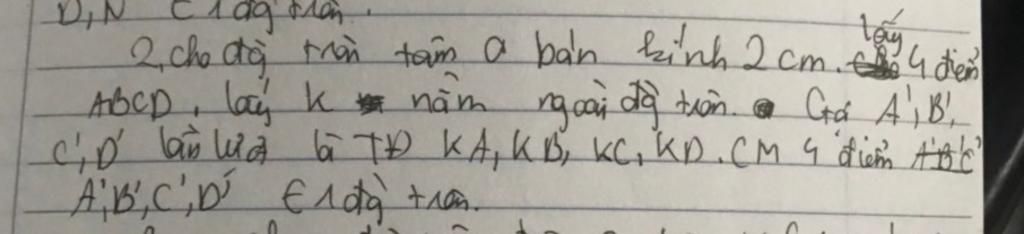 D, N ∈ 1 đg tròn.
2, cho đg tròn tâm O bán kính 2 cm. lấy 4 điểm
ABCD, lấy K nằm ngoài đg tròn. Gọi A', B',
C', D' lần lượt là TĐ KA, KB, KC, KD. CM 4 điểm
A', B', C', D' ∈ 1 đg tròn.